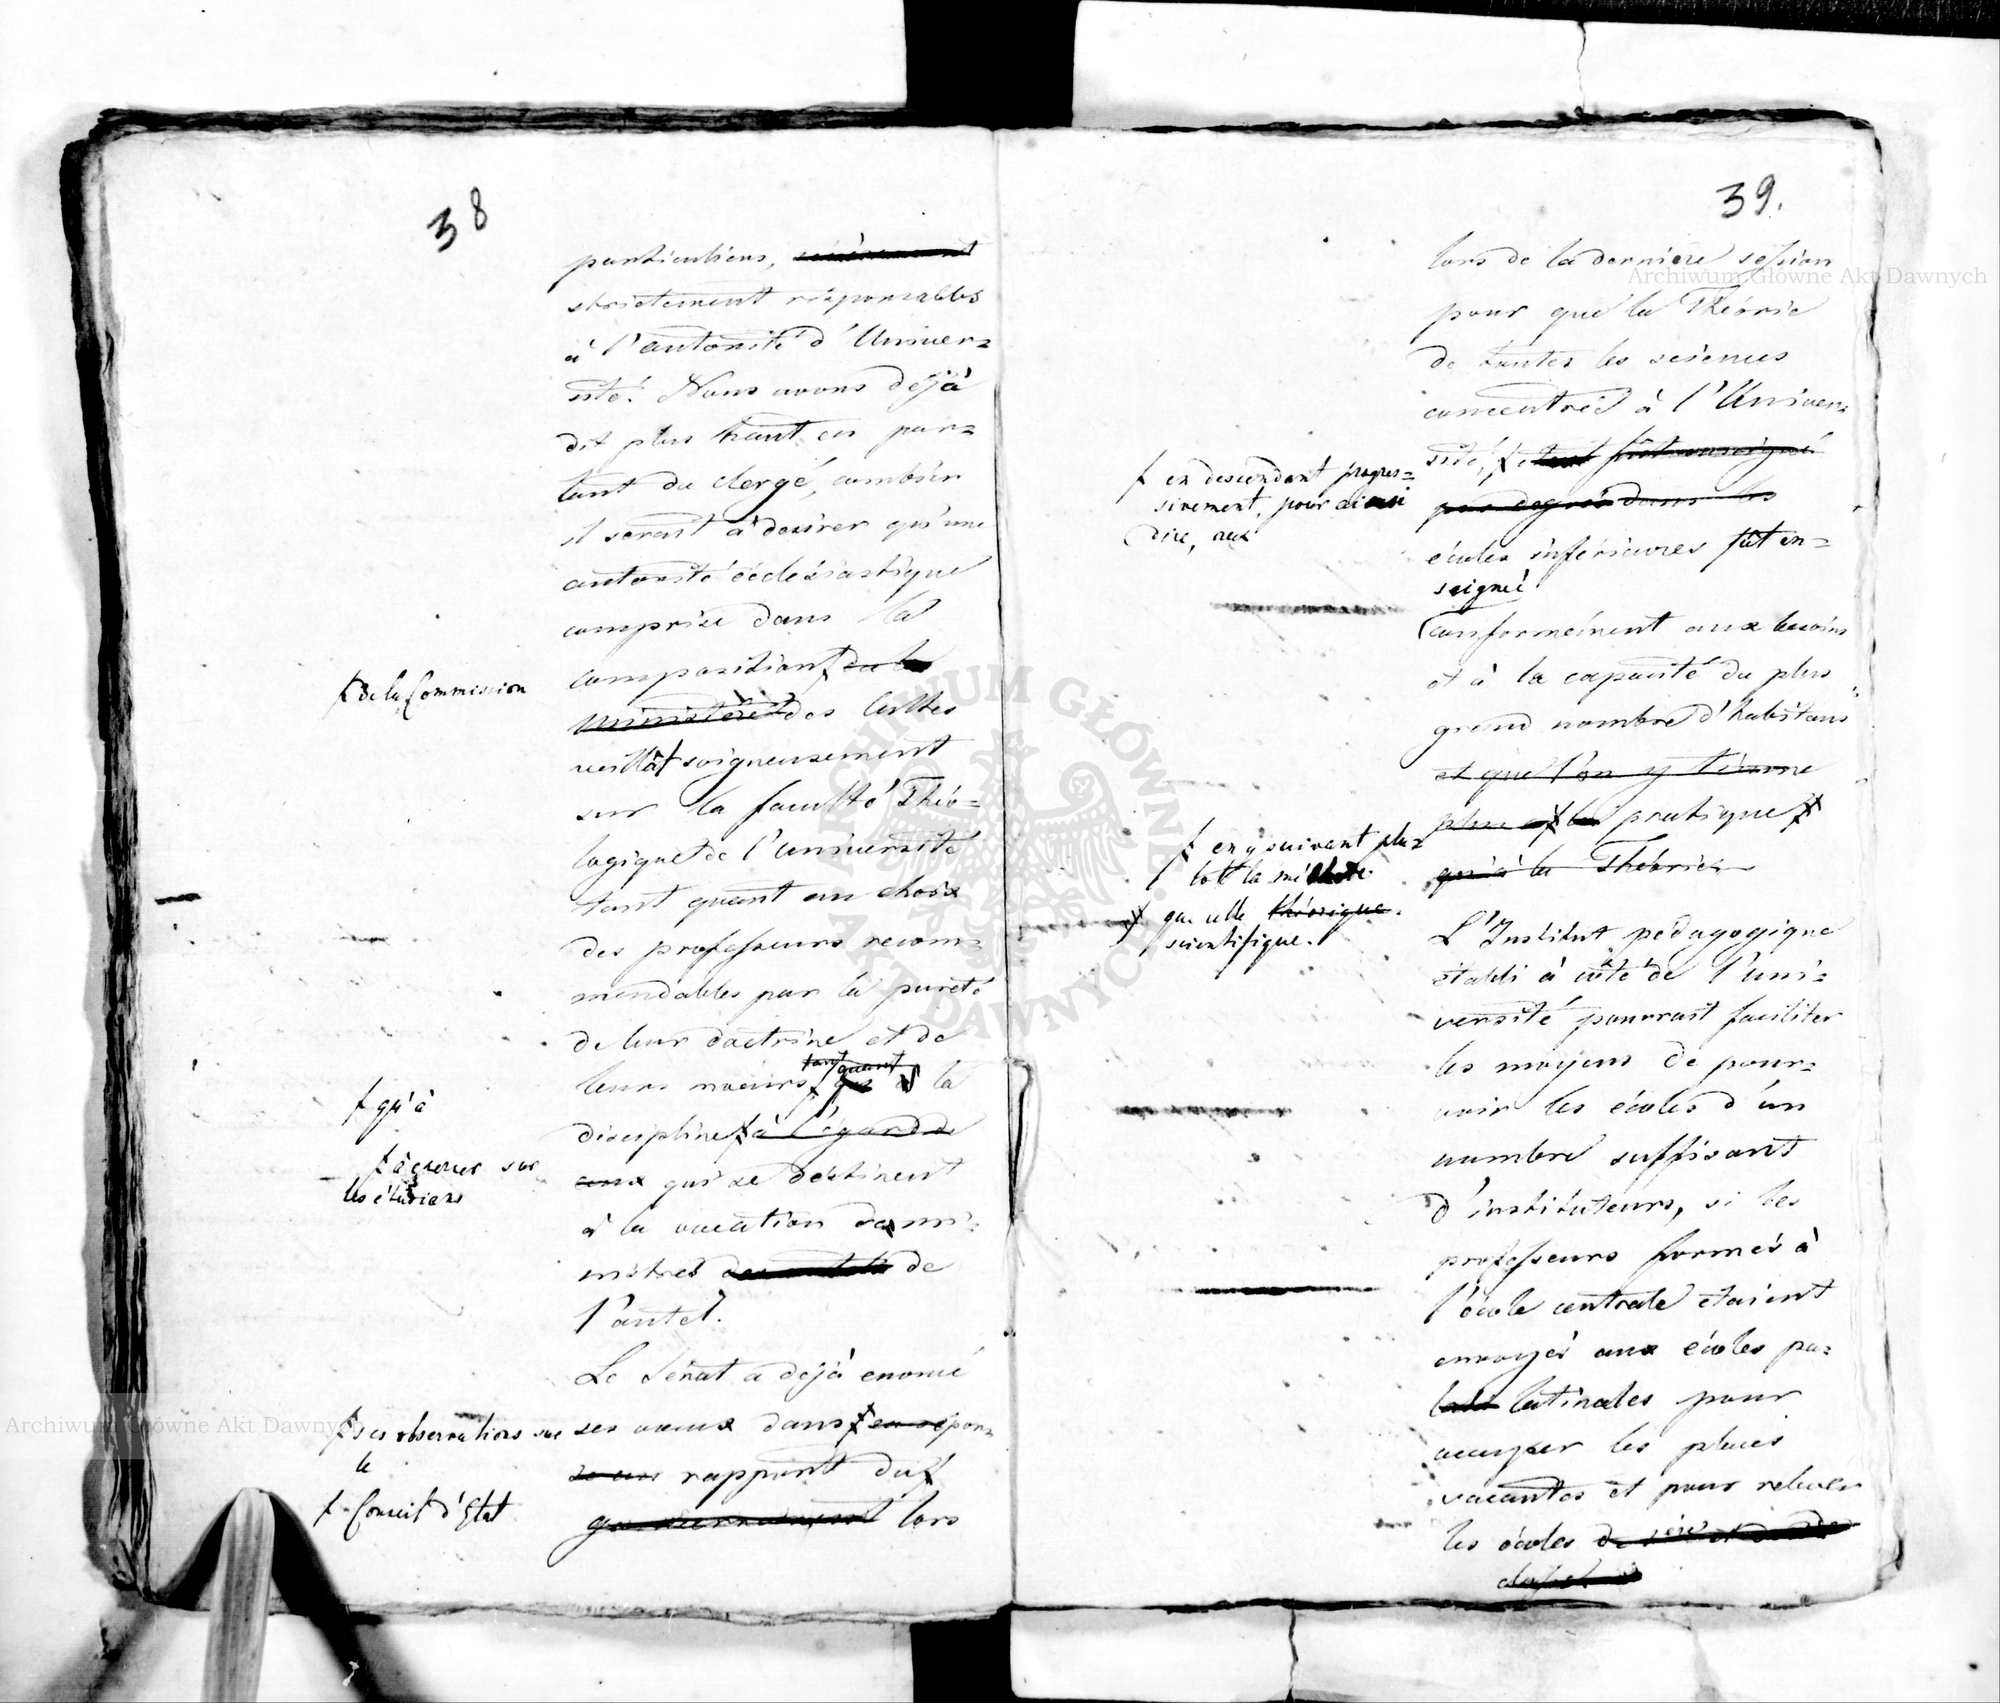 38
particuliers,
strictement responsables
à l'autorité d'Univer=
sité. Nous avons déjà
dit plus haut en par=
lant du clergé, combien
il serait à desirer qu'une
autorité écclésiastique
comprise dans la
composition de la
ministère des Cultes
veillât soigneusement
sur la faculté Théo=
logique de l'université
tant quant au choix
des professeurs recom=
mendables par la pureté
de leur doctrine et de
tant quant
leurs moeurs, que à la
discipline à l'égard de
ceux qui se destinent
à la vocation de mi=
nistres des autels de
l'autel.
Le Sénat a déjà enoncé
ses voeux dans sa repon=
se au rapport du
gouvernement lors
de la Commission
qu'à
à exercer sur
les étudians
ses observations sur
le
Conseil d'Etat
39.
lors de la dernière session
pour que la Théorie
de toutes les sciences
concentrée à l'Univer=
sité, et fût enseigné
par degrés dans les
écoles inférieures fût en=
seigné
conformément aux besoins
et à la capacité du plus
grand nombre d'habitans
et que l'on y tienne
plus à la pratique
qu'à la Théorie.
L'Institut pedagogique
établi à côté de l'uni=
versité pourrait faciliter
les moyens de pour=
voir les écoles d'un
nombre suffisant
d'instituteurs, si les
professeurs formés à
l'école centrale étaient
envoyés aux écoles pa=
latinales pour
occuper les places
vacantes et pour relever
les écoles de
classe
en descendant progres=
sivement, pour ainsi
dire, aux
en y suivant plu=
tôt la méthode
que celle théorique
scientifique.
Archiwum Główne Akt Dawnych
Archiwum Główne Akt Dawnych
ARCHIWUM GŁÓWNE AKT DAWNYCH